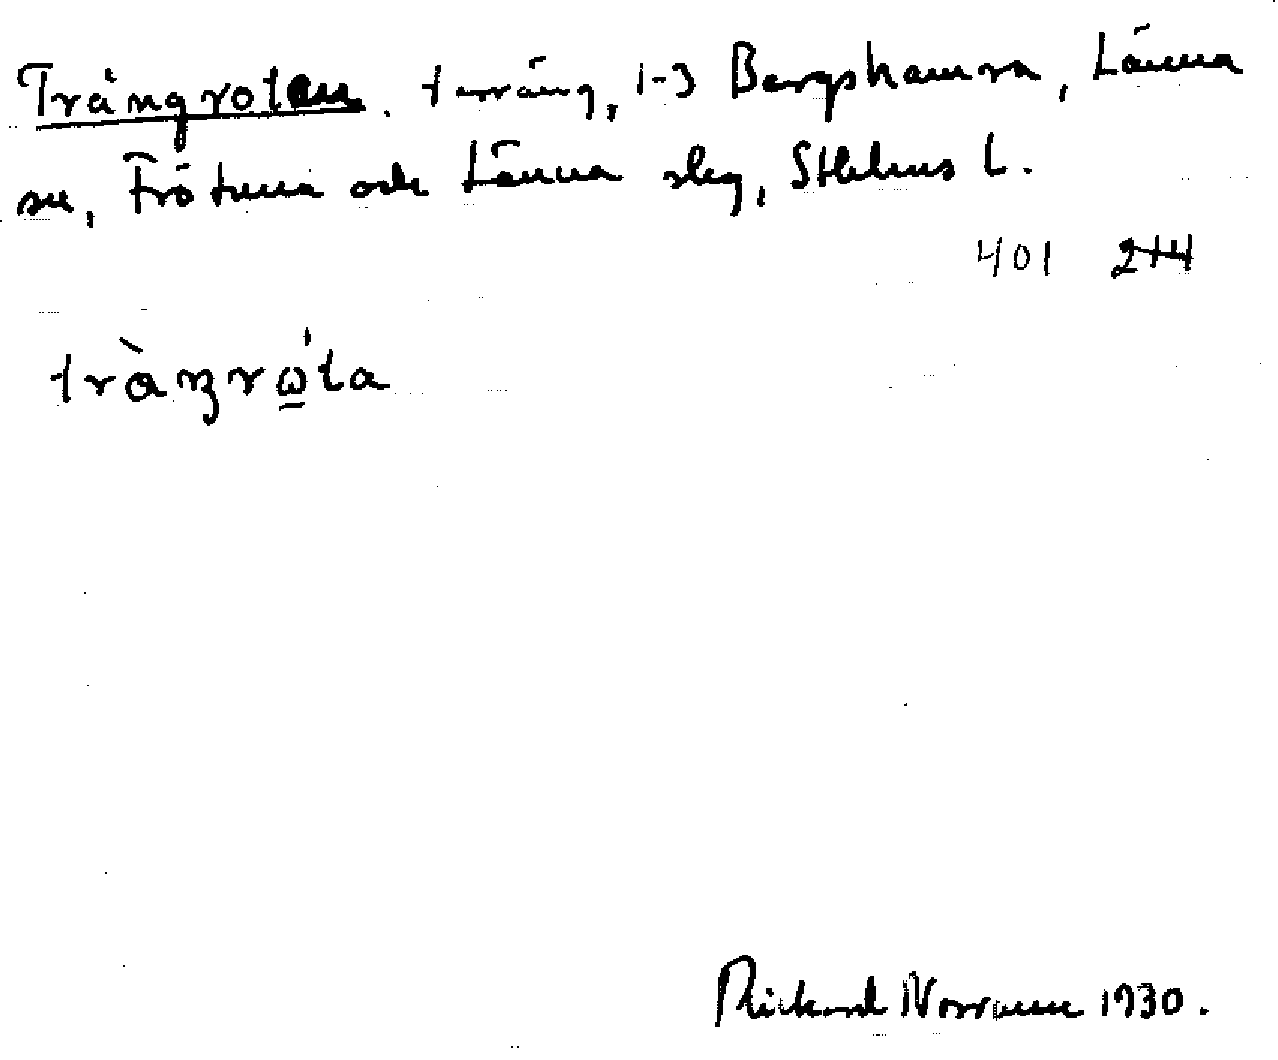 Trångroten. terräng, 1-3 Bergshamra, Länna
sn, Frötuna och Länna slg, Sthlms l.
401 2+4
tràŋrω̲ˈta
Rickard Norrman 1930.